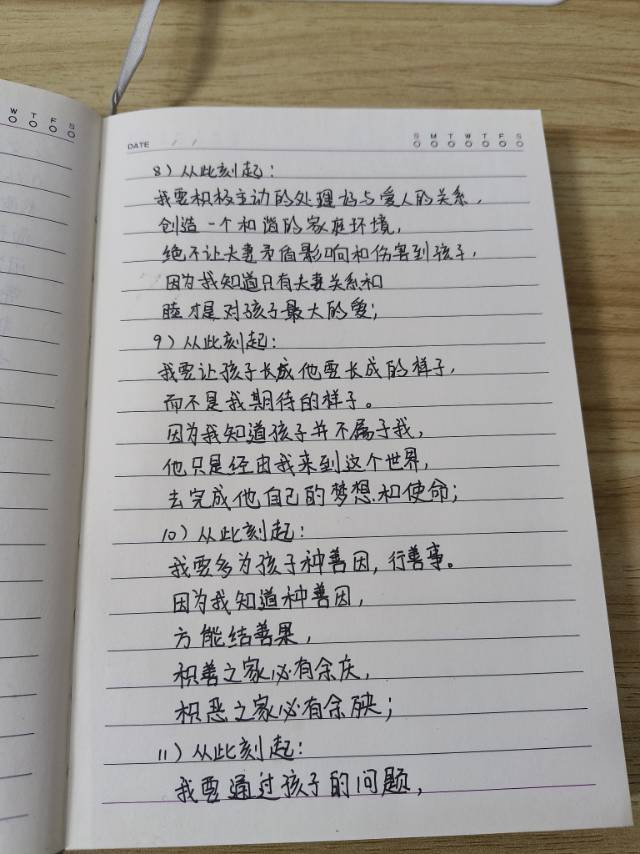 W T F S
DATE / /
S M T W T F S
8）从此刻起：
我要积极主动的处理好与爱人的关系，
创造一个和谐的家庭环境，
绝不让夫妻矛盾影响和伤害到孩子，
因为我知道只有夫妻关系和
睦才是对孩子最大的爱；
9）从此刻起：
我要让孩子长成他要长成的样子，
而不是我期待的样子。
因为我知道孩子并不属于我，
他只是经由我来到这个世界，
去完成他自己的梦想和使命；
10）从此刻起：
我要多为孩子种善因，行善事。
因为我知道种善因，
方能结善果，
积善之家必有余庆，
积恶之家必有余殃；
11）从此刻起：
我要通过孩子的问题，